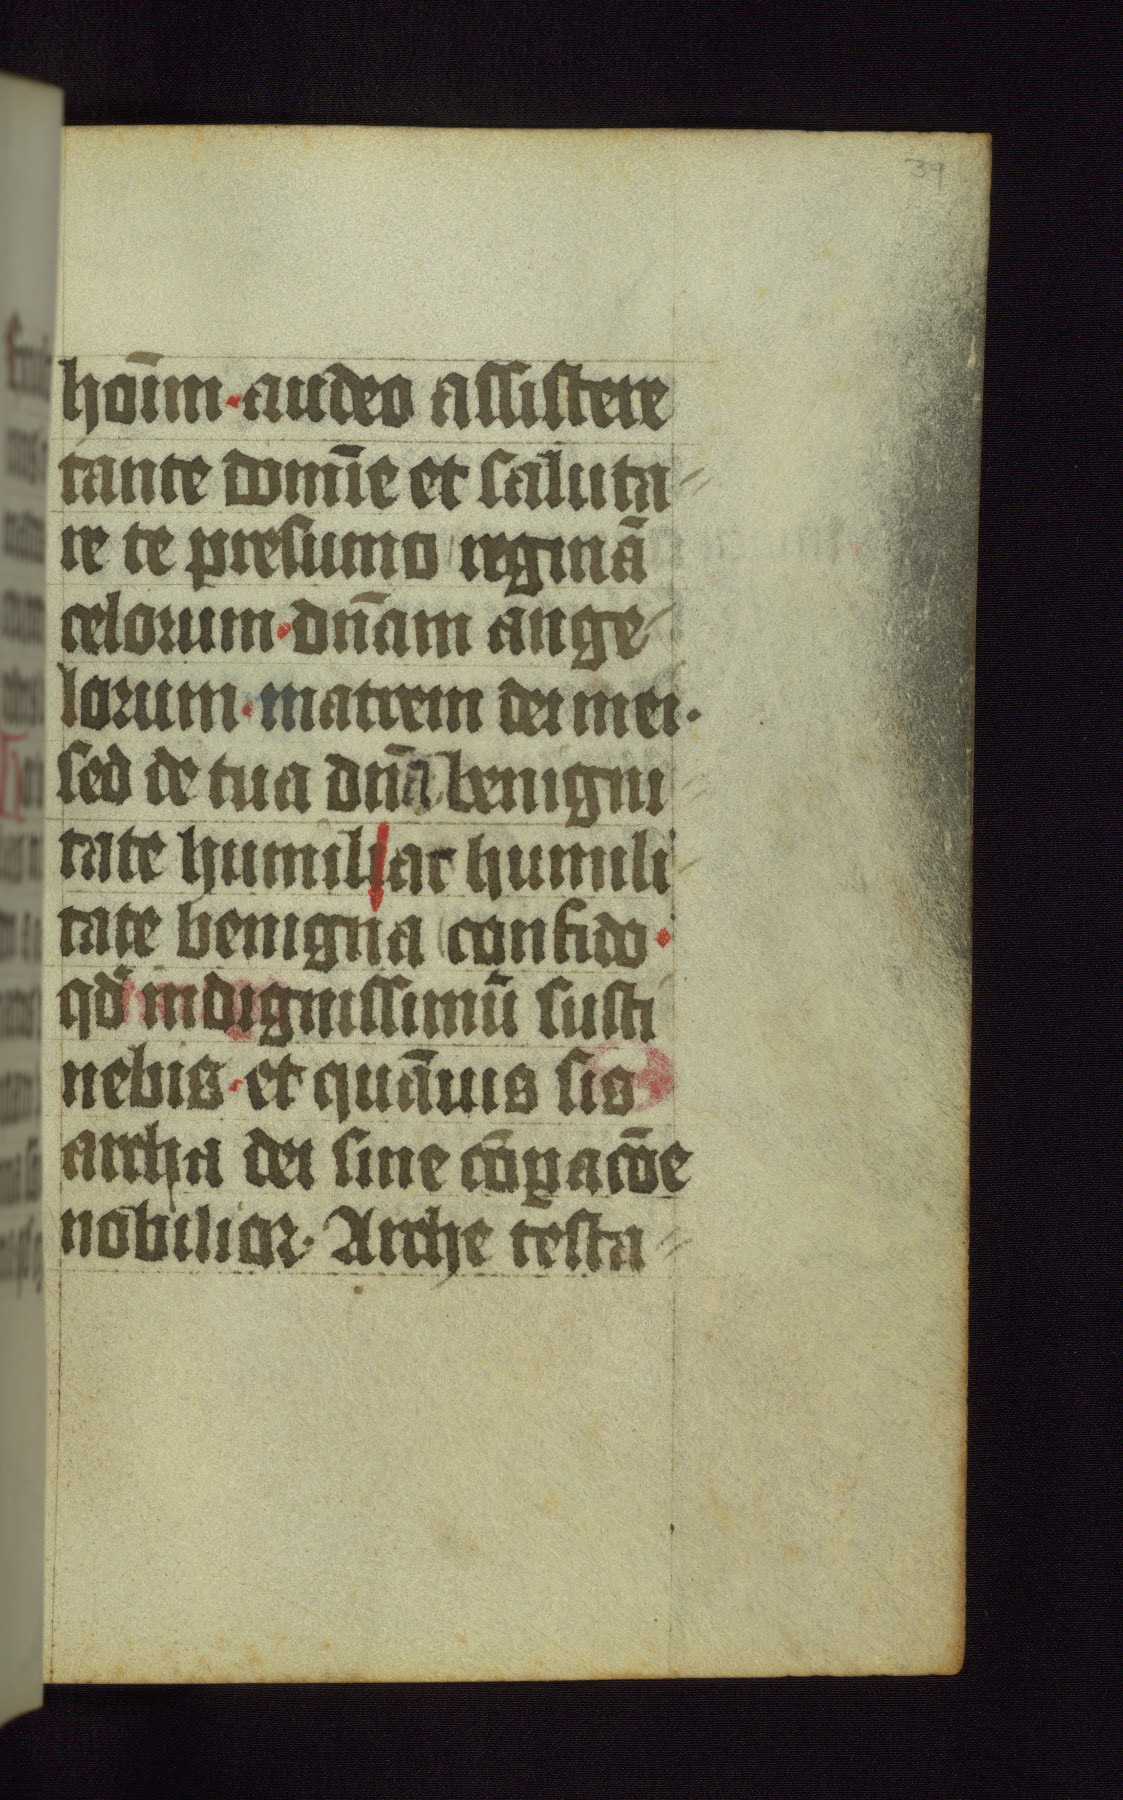 39
hoīm · audeo assistere
tante domīe et saluta
re te presumo reginā
celorum · dn̄am ange
lorum · matrem dei mei ·
sed de tua dn̄a benigni
tate humili ac humili
tate benigna confido ·
qd̄ indignissimū susti
nebis · et quāuis sis
archa dei sine cōꝑacōe
nobilior · Arche testa